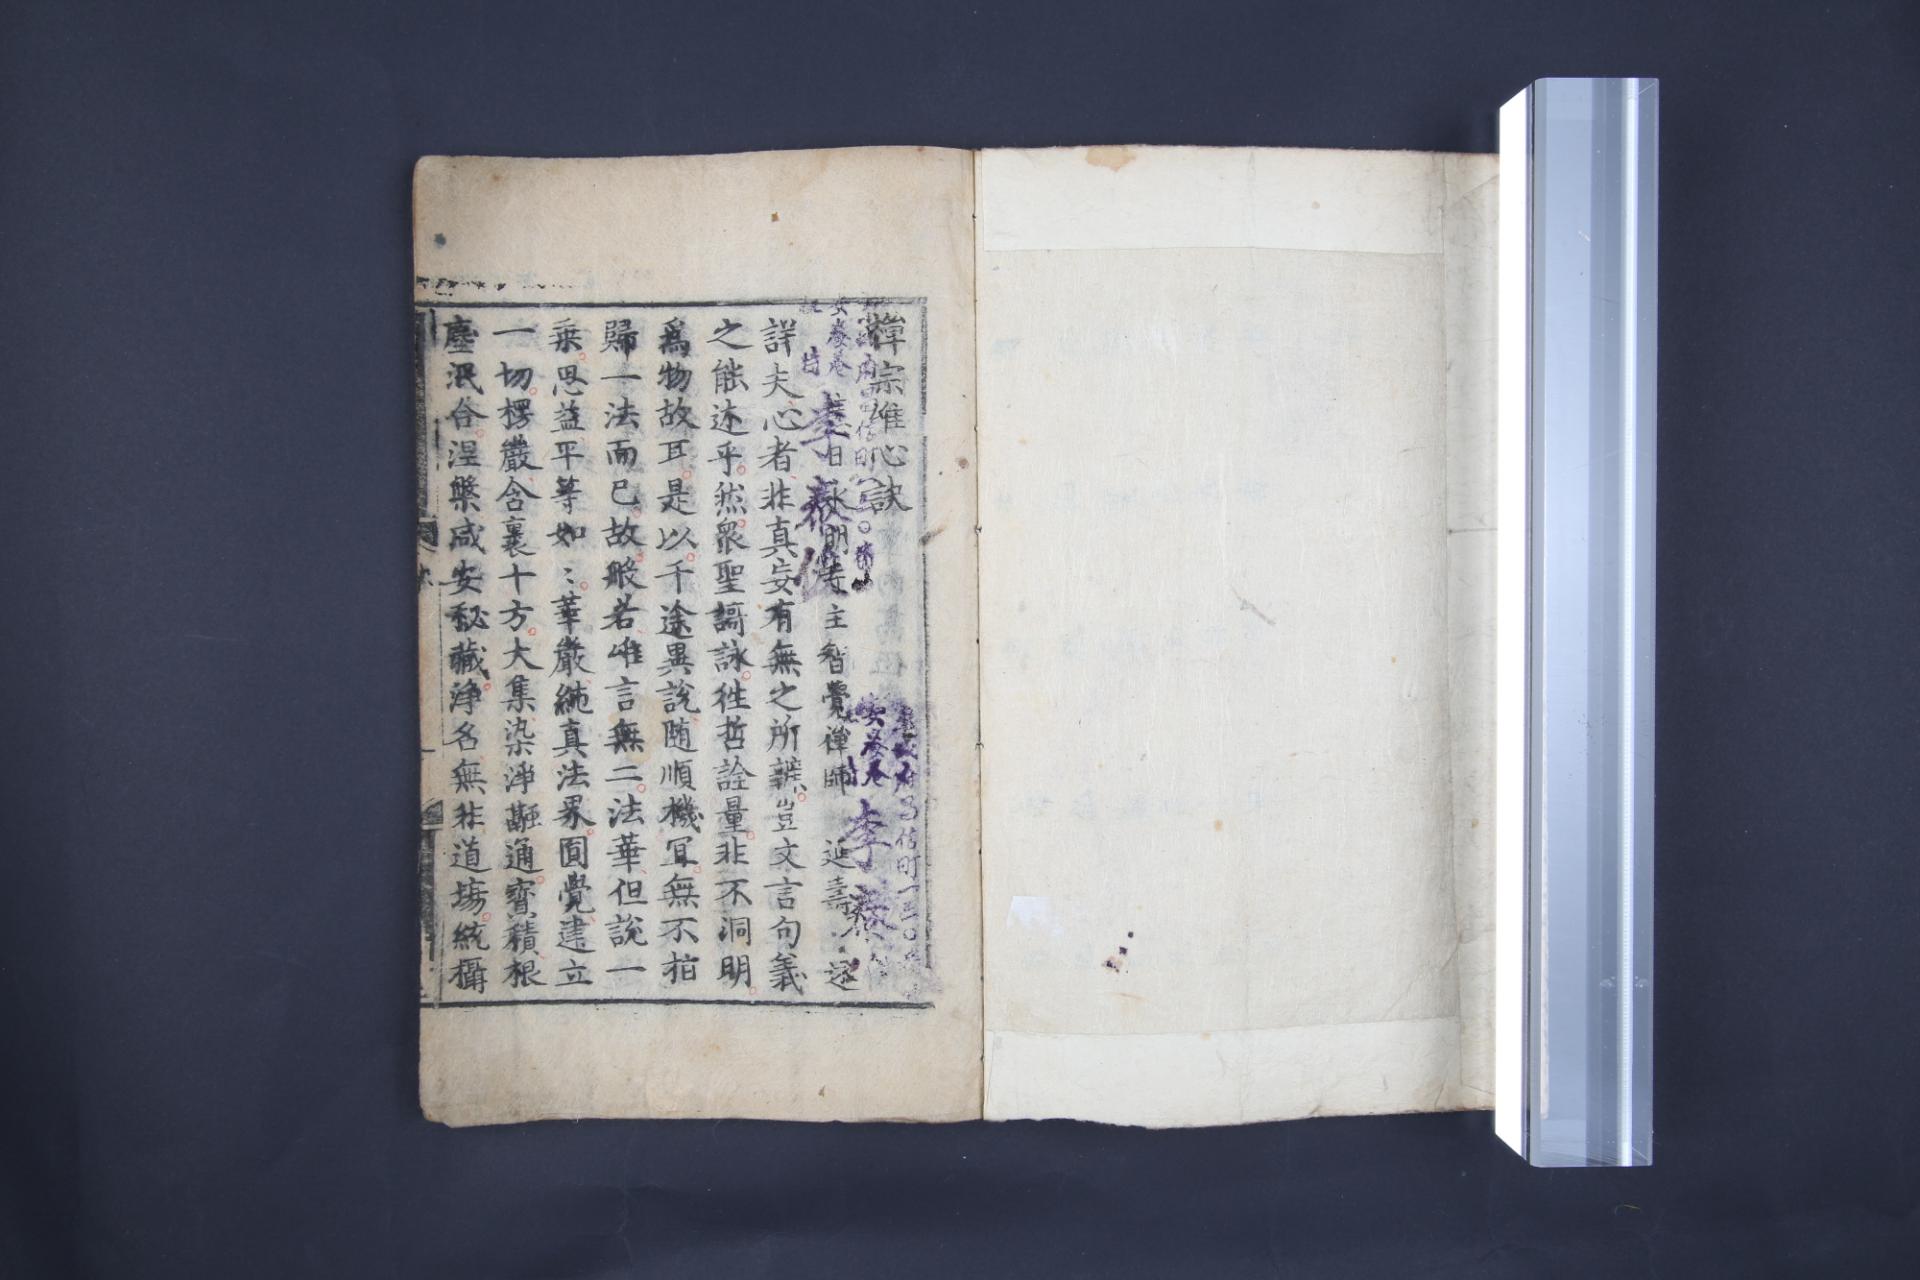 禪宗唯心訣
大宋吳越國慧日永明寺主智覺禪師 延壽 述
詳夫心者非真妄有無之所辨豈文言句義
之能述乎然衆聖謌詠徃哲詮量非不洞明
爲物故耳是以千途異說随順機冝無不拍
歸一法而已故般若唯言無二法華但說一
乗思益平等如〻華嚴純真法界圓覺建立
一切楞嚴含裹十方大集染淨融通寳積根
塵泯合涅槃咸安秘藏淨名無非道塲統攝
安養菴
李
安養菴
李